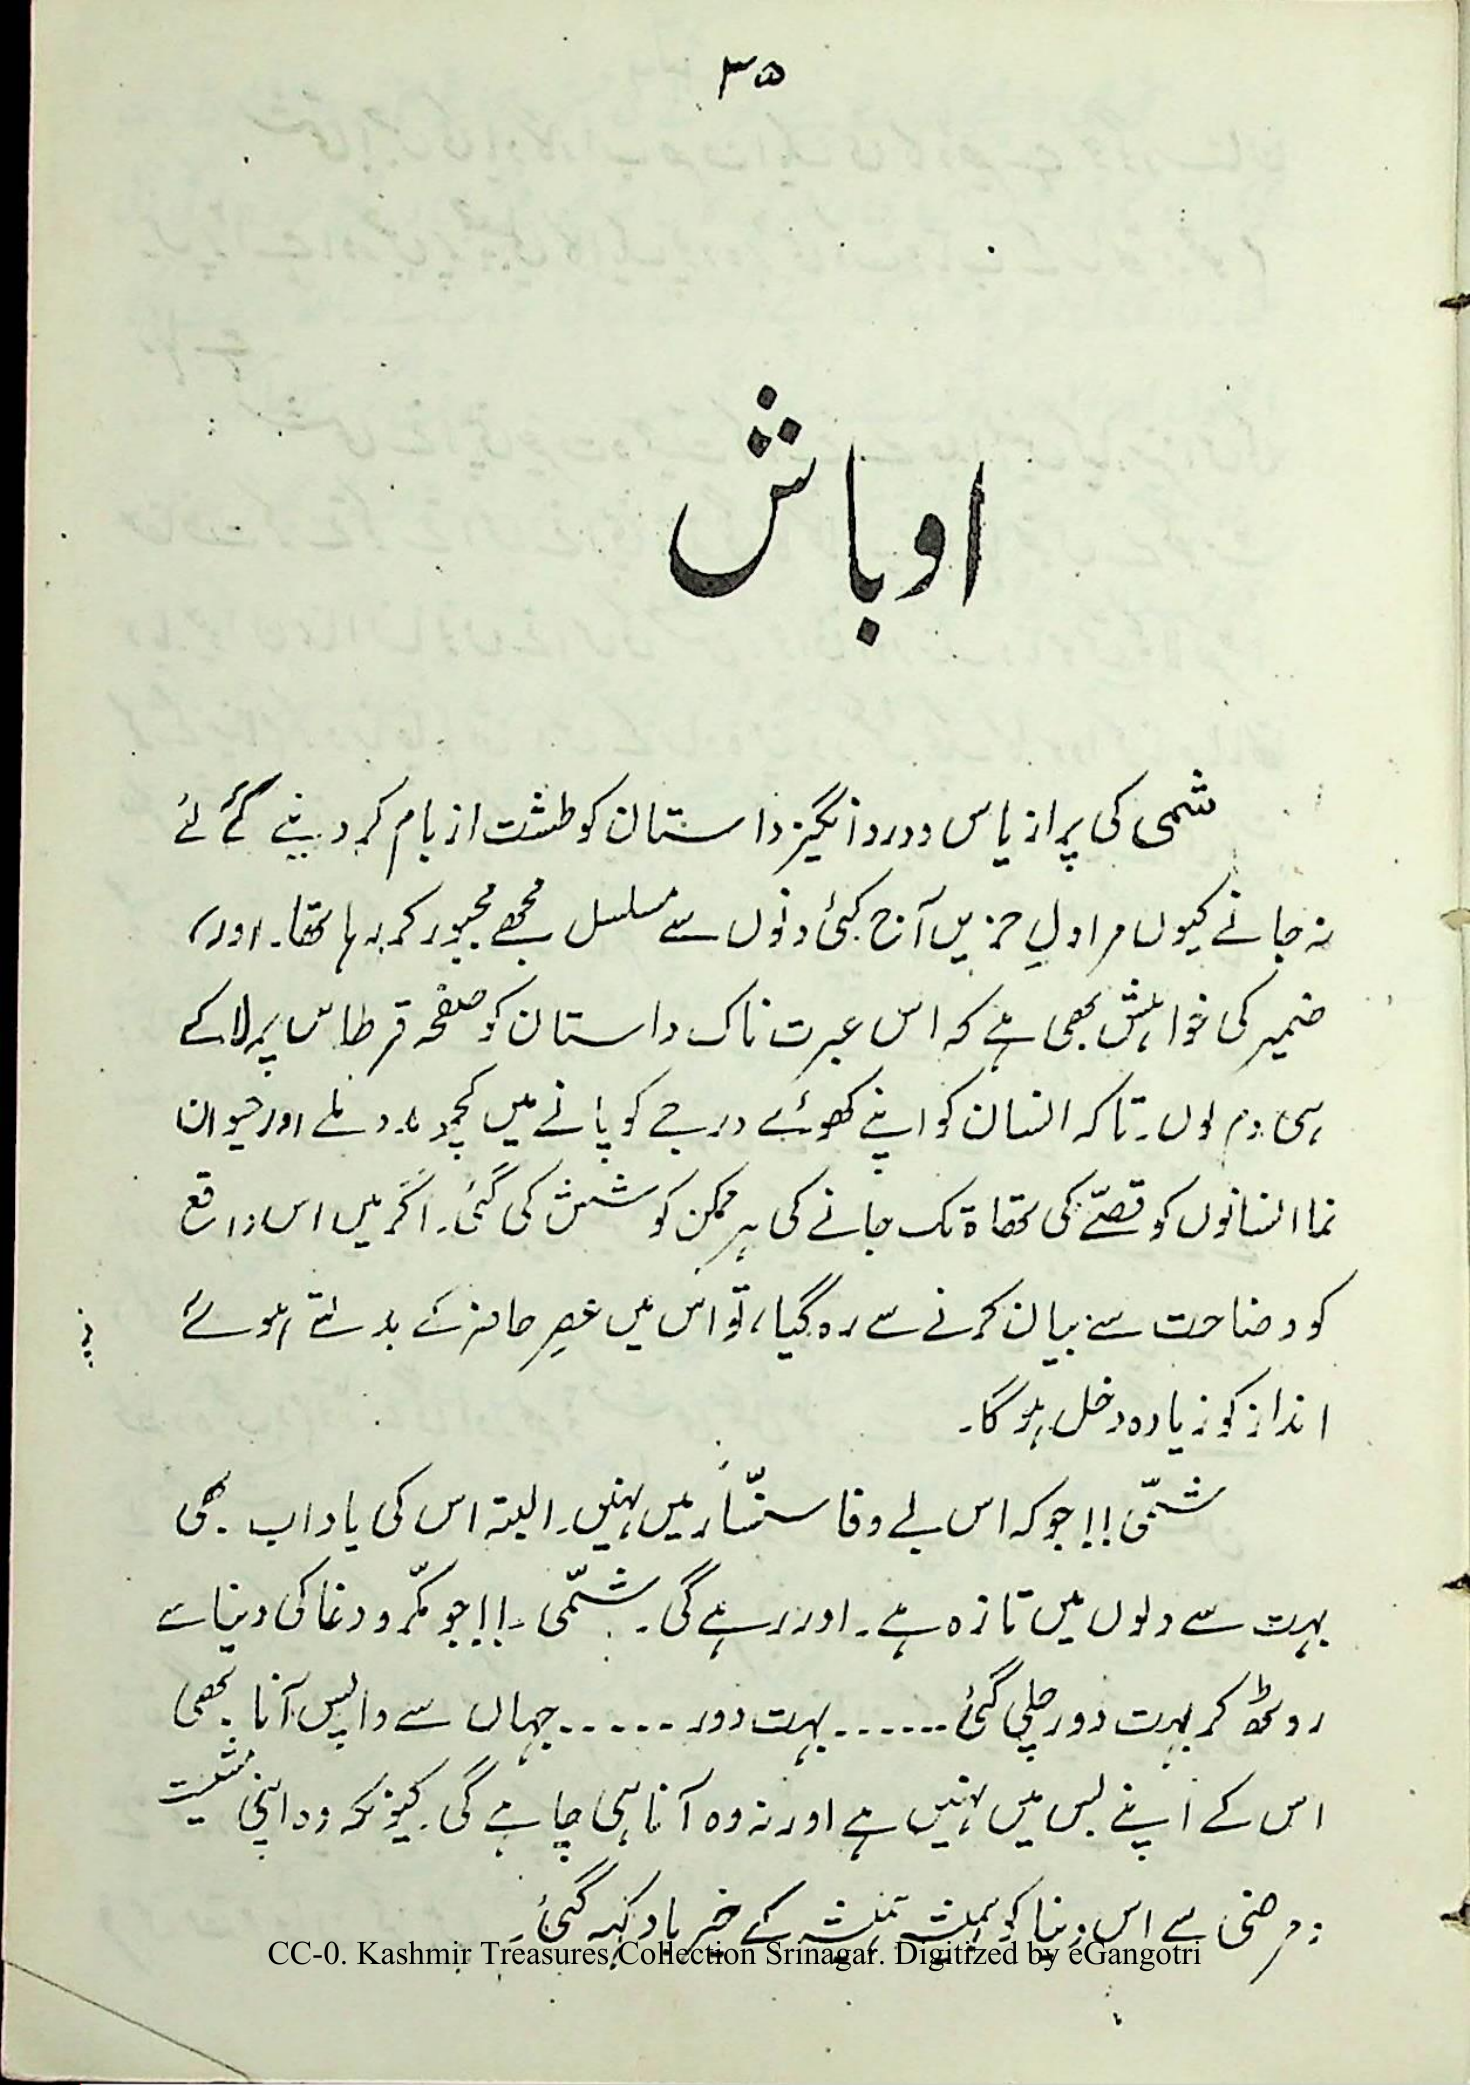 ۳۵
اوباش
شمی کی پر از یاس و درد انگیز داستان کو طشت از بام کر دینے کے لئے
نہ جانے کیوں مرا دلِ حزیں آج کئی دنوں سے مسلسل مجھے مجبور کر رہا تھا۔ اور
ضمیر کی خواہش بھی ہے کہ اس عبرت ناک داستان کو صفحہ قرطاس پر لا کے
ہی دم لوں۔ تاکہ انسان کو اپنے کھوئے درجے کو پانے میں کچھ مدد ملے اور حیوان
نما انسانوں کو قصّے کی تک جانے کی ہر ممکن کوشش کی گئی۔ اگر میں اس واقع
کو وضاحت سے بیان کرنے سے رہ گیا، تو اس میں عصرِ حاضر کے بدلتے ہوئے
انداز کو زیادہ دخل ہو گا۔
شمّی!! جو کہ اس بے وفا سنسار میں نہیں۔ البتہ اس کی یاد اب بھی
بہت سے دلوں میں تازہ ہے۔ اور رہے گی۔ شمّی۔!! جو مکّر و دغا کی دنیا سے
روٹھ کر بہت دور چلی گئی ۔۔۔۔۔۔ بہت دور ۔۔۔۔۔ جہاں سے واپس آنا بھی
اس کے اپنے بس میں نہیں ہے اور نہ وہ آنا ہی چاہے گی۔ کیونکہ وہ اپنی مشیت
و مرضی سے اس دنیا کو ہمیشہ ہمیشہ کے خیر باد کہہ گئی۔
CC-0. Kashmir Treasures Collection Srinagar. Digitized by eGangotri